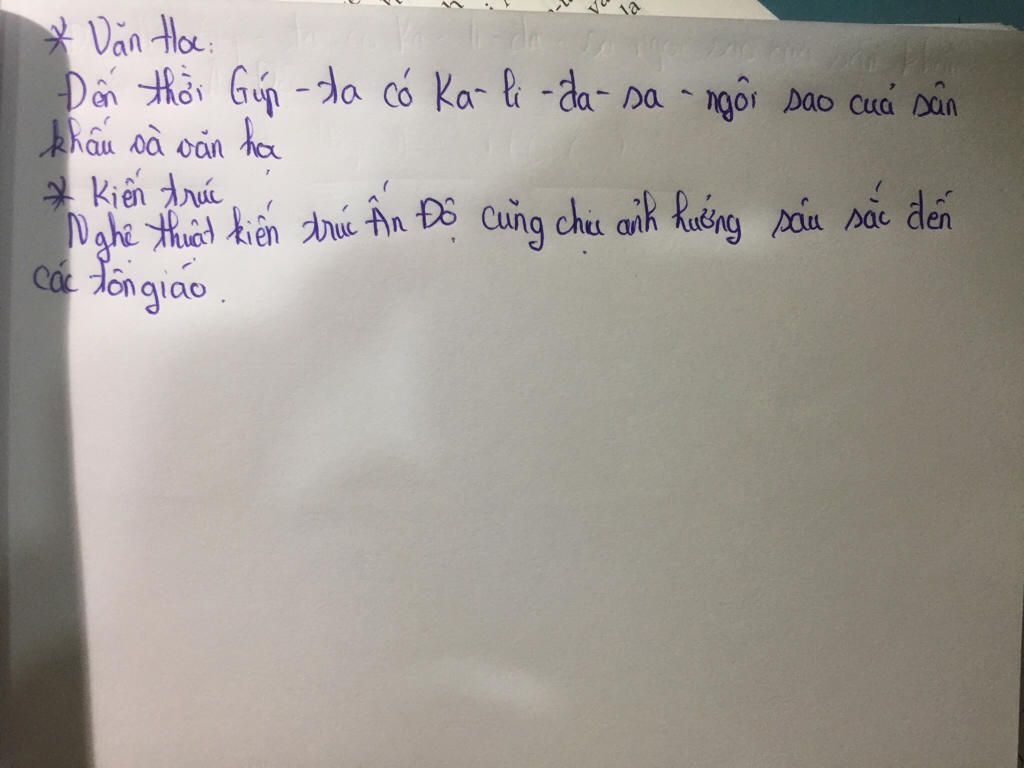 * Văn Học:
Đến thời Gúp - ta có Ka - li - đa - sa - ngôi sao cuả sân
khấu và văn học
* Kiến trúc
Nghệ thuật kiến trúc Ấn Độ cũng chịu ảnh hưởng sâu sắc đến
các tôn giáo.